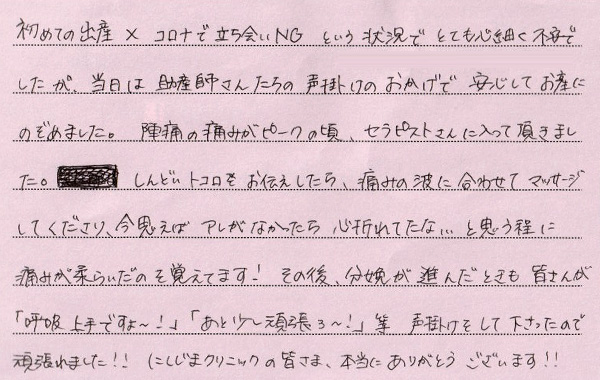 初めての出産 × コロナで立ち会いNG という状況で とても心細く不安で
したが、当日は 助産師さんたちの 声掛けの おかげで 安心して お産に
のぞめました。 陣痛の痛みがピークの頃、セラピストさんに入って頂きまし
た。 しんどいトコロを お伝えしたら、痛みの波に合わせて マッサージ
してくださり、今思えば アレがなかったら 心折れてたな… と思う程に
痛みが柔らいだのを覚えてます! その後、分娩が 進んだときも 皆さんが
「呼吸 上手ですよ〜!」「あと少〜し頑張ろ〜!」等 声掛けをして下さったので
頑張れました!! にしじまクリニックの皆さま、本当に ありがとう ございます!!